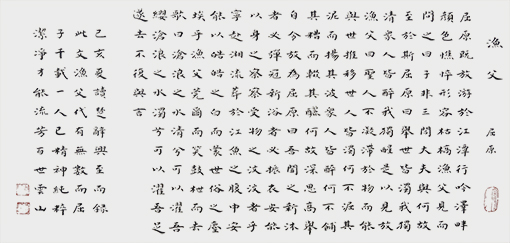 漁父 屈原
屈原既放游於江潭行吟澤畔
顏色憔悴形容枯槁漁父見而
問之曰子非三閭大夫與何故
至於斯屈原曰舉世皆濁我獨
清眾人皆醉我獨醒是以見放
漁父曰聖人不凝滯於物而能
與世推移世人皆濁何不淈其
泥而揚其波眾人皆醉何不餔
其糟而歠其醨何故深思高舉
自令放為屈原曰吾聞之新沐
者必彈冠新浴者必振衣安能
以身之察察受物之汶汶者乎
寧赴湘流葬於江魚之腹中安
能以皓皓之白而蒙世俗之塵
埃乎漁父莞爾而笑鼓枻而去
歌曰滄浪之水清兮可以濯吾
纓滄浪之水濁兮可以濯吾足
遂去不復與言
己亥夏讀楚辭興至而錄
此文漁父代有無數而屈
子千載一人已有精神純粹
潔淨才能流芳百世雲山